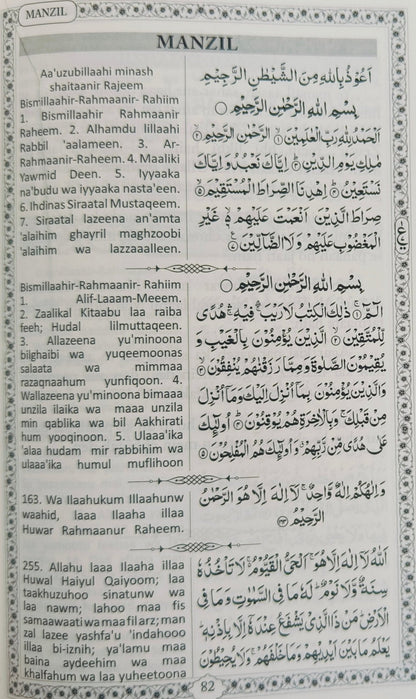 MANZIL
MANZIL
Aa'uzubillaahi minash
shaitaanir Rajeem
Bismillaahir-Rahmaanir- Rahiim
1. Bismillaahir Rahmaanir
Raheem. 2. Alhamdu lillaahi
Rabbil 'aalameen. 3. Ar-
Rahmaanir-Raheem. 4. Maaliki
Yawmid Deen. 5. Iyyaaka
na'budu wa iyyaaka nasta'een.
6. Ihdinas Siraatal Mustaqeem.
7. Siraatal lazeena an'amta
'alaihim ghayril maghzoobi
'alaihim wa lazzaaalleen.
اَعُوْذُ بِاللّٰهِ مِنَ الشَّيْطٰنِ الرَّجِيْمِ
بِسْمِ اللّٰهِ الرَّحْمٰنِ الرَّحِيْمِ ○
اَلْحَمْدُ لِلّٰهِ رَبِّ الْعٰلَمِيْنَ ۙ﴿۱﴾ الرَّحْمٰنِ الرَّحِيْمِ ۙ﴿۲﴾
مٰلِكِ يَوْمِ الدِّيْنِ ؕ﴿۳﴾ اِيَّاكَ نَعْبُدُ وَاِيَّاكَ
نَسْتَعِيْنُ ؕ﴿۴﴾ اِهْدِنَا الصِّرَاطَ الْمُسْتَقِيْمَ ۙ﴿۵﴾
صِرَاطَ الَّذِيْنَ اَنْعَمْتَ عَلَيْهِمْ ۙ﴿۶﴾ غَيْرِ
الْمَغْضُوْبِ عَلَيْهِمْ وَلَا الضَّآلِّيْنَ ﴿۷﴾
Bismillaahir-Rahmaanir- Rahiim
1. Alif-Laaam-Meeem.
2. Zaalikal Kitaabu laa raiba
feeh; Hudal lilmuttaqeen.
3. Allazeena yu'minoona
bilghaibi wa yuqeemoonas
salaata wa mimmaa
razaqnaahum yunfiqoon. 4.
Wallazeena yu'minoona bimaaa
unzila ilaika wa maaa unzila
min qablika wa bil Aakhirati
hum yooqinoon. 5. Ulaaa'ika
'alaa hudam mir rabbihim wa
ulaaa'ika humul muflihoon
بِسْمِ اللّٰهِ الرَّحْمٰنِ الرَّحِيْمِ ○
الٓمّٓ ۚ﴿۱﴾ ذٰلِكَ الْكِتٰبُ لَا رَيْبَ ۛۚ فِيْهِ ۛۚ هُدًى
لِّلْمُتَّقِيْنَ ۙ﴿۲﴾ الَّذِيْنَ يُؤْمِنُوْنَ بِالْغَيْبِ وَ
يُقِيْمُوْنَ الصَّلٰوةَ وَمِمَّا رَزَقْنٰهُمْ يُنْفِقُوْنَ ۙ﴿۳﴾
وَالَّذِيْنَ يُؤْمِنُوْنَ بِمَآ اُنْزِلَ اِلَيْكَ وَمَآ اُنْزِلَ
مِنْ قَبْلِكَ ۚ وَبِالْاٰخِرَةِ هُمْ يُوْقِنُوْنَ ؕ﴿۴﴾ اُولٰٓئِكَ
عَلٰى هُدًى مِّنْ رَّبِّهِمْ ۙ وَاُولٰٓئِكَ هُمُ الْمُفْلِحُوْنَ ﴿۵﴾
163. Wa Ilaahukum Illaahunw
waahid, laaa Ilaaha illaa
Huwar Rahmaanur Raheem.
وَاِلٰهُكُمْ اِلٰهٌ وَّاحِدٌ ۚ لَآ اِلٰهَ اِلَّا هُوَ الرَّحْمٰنُ
الرَّحِيْمُ
255. Allahu laaa Ilaaha illaa
Huwal Haiyul Qaiyoom; laa
taakhuzuhoo sinatunw wa
laa nawm; lahoo maa fis
samaawaati wa maa fil arz; man
zal lazee yashfa'u 'indahooo
illaa bi-iznih; ya'lamu maa
baina aydeehim wa maa
khalfahum wa laa yuheetoona
اَللّٰهُ لَآ اِلٰهَ اِلَّا هُوَ ۚ اَلْحَيُّ الْقَيُّوْمُ ۚ لَا تَاْخُذُهٗ
سِنَةٌ وَّلَا نَوْمٌ ؕ لَهٗ مَا فِى السَّمٰوٰتِ وَمَا فِى
الْاَرْضِ ؕ مَنْ ذَا الَّذِىْ يَشْفَعُ عِنْدَهٗٓ اِلَّا بِاِذْنِهٖ ؕ
يَعْلَمُ مَا بَيْنَ اَيْدِيْهِمْ وَمَا خَلْفَهُمْ ۚ وَلَا يُحِيْطُوْنَ
82